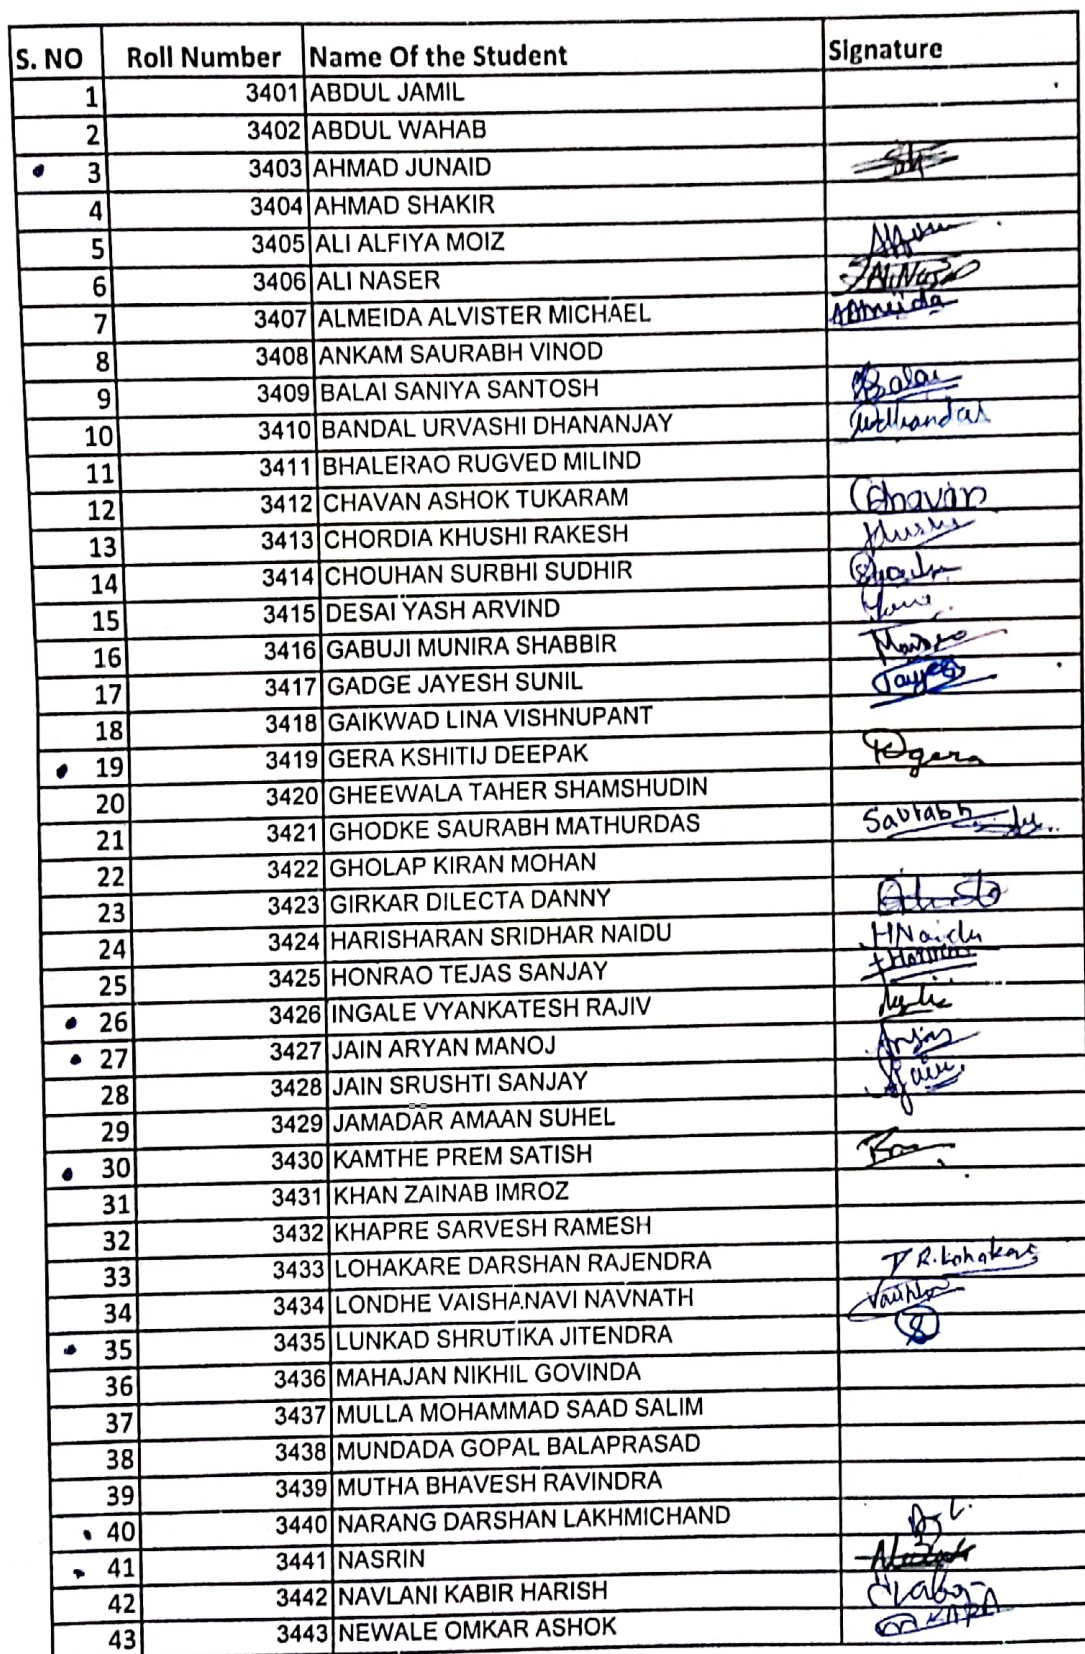 S. NO Roll Number Name Of the Student Signature
1 3401 ABDUL JAMIL
2 3402 ABDUL WAHAB
3 3403 AHMAD JUNAID
4 3404 AHMAD SHAKIR
5 3405 ALI ALFIYA MOIZ
6 3406 ALI NASER
7 3407 ALMEIDA ALVISTER MICHAEL Almeida
8 3408 ANKAM SAURABH VINOD
9 3409 BALAI SANIYA SANTOSH
10 3410 BANDAL URVASHI DHANANJAY
11 3411 BHALERAO RUGVED MILIND
12 3412 CHAVAN ASHOK TUKARAM Chavan
13 3413 CHORDIA KHUSHI RAKESH
14 3414 CHOUHAN SURBHI SUDHIR
15 3415 DESAI YASH ARVIND
16 3416 GABUJI MUNIRA SHABBIR
17 3417 GADGE JAYESH SUNIL
18 3418 GAIKWAD LINA VISHNUPANT
19 3419 GERA KSHITIJ DEEPAK
20 3420 GHEEWALA TAHER SHAMSHUDIN
21 3421 GHODKE SAURABH MATHURDAS Saurabh
22 3422 GHOLAP KIRAN MOHAN
23 3423 GIRKAR DILECTA DANNY
24 3424 HARISHARAN SRIDHAR NAIDU HNaidu
25 3425 HONRAO TEJAS SANJAY
26 3426 INGALE VYANKATESH RAJIV
27 3427 JAIN ARYAN MANOJ
28 3428 JAIN SRUSHTI SANJAY
29 3429 JAMADAR AMAAN SUHEL
30 3430 KAMTHE PREM SATISH
31 3431 KHAN ZAINAB IMROZ
32 3432 KHAPRE SARVESH RAMESH
33 3433 LOHAKARE DARSHAN RAJENDRA
34 3434 LONDHE VAISHANAVI NAVNATH
35 3435 LUNKAD SHRUTIKA JITENDRA
36 3436 MAHAJAN NIKHIL GOVINDA
37 3437 MULLA MOHAMMAD SAAD SALIM
38 3438 MUNDADA GOPAL BALAPRASAD
39 3439 MUTHA BHAVESH RAVINDRA
40 3440 NARANG DARSHAN LAKHMICHAND
41 3441 NASRIN
42 3442 NAVLANI KABIR HARISH
43 3443 NEWALE OMKAR ASHOK